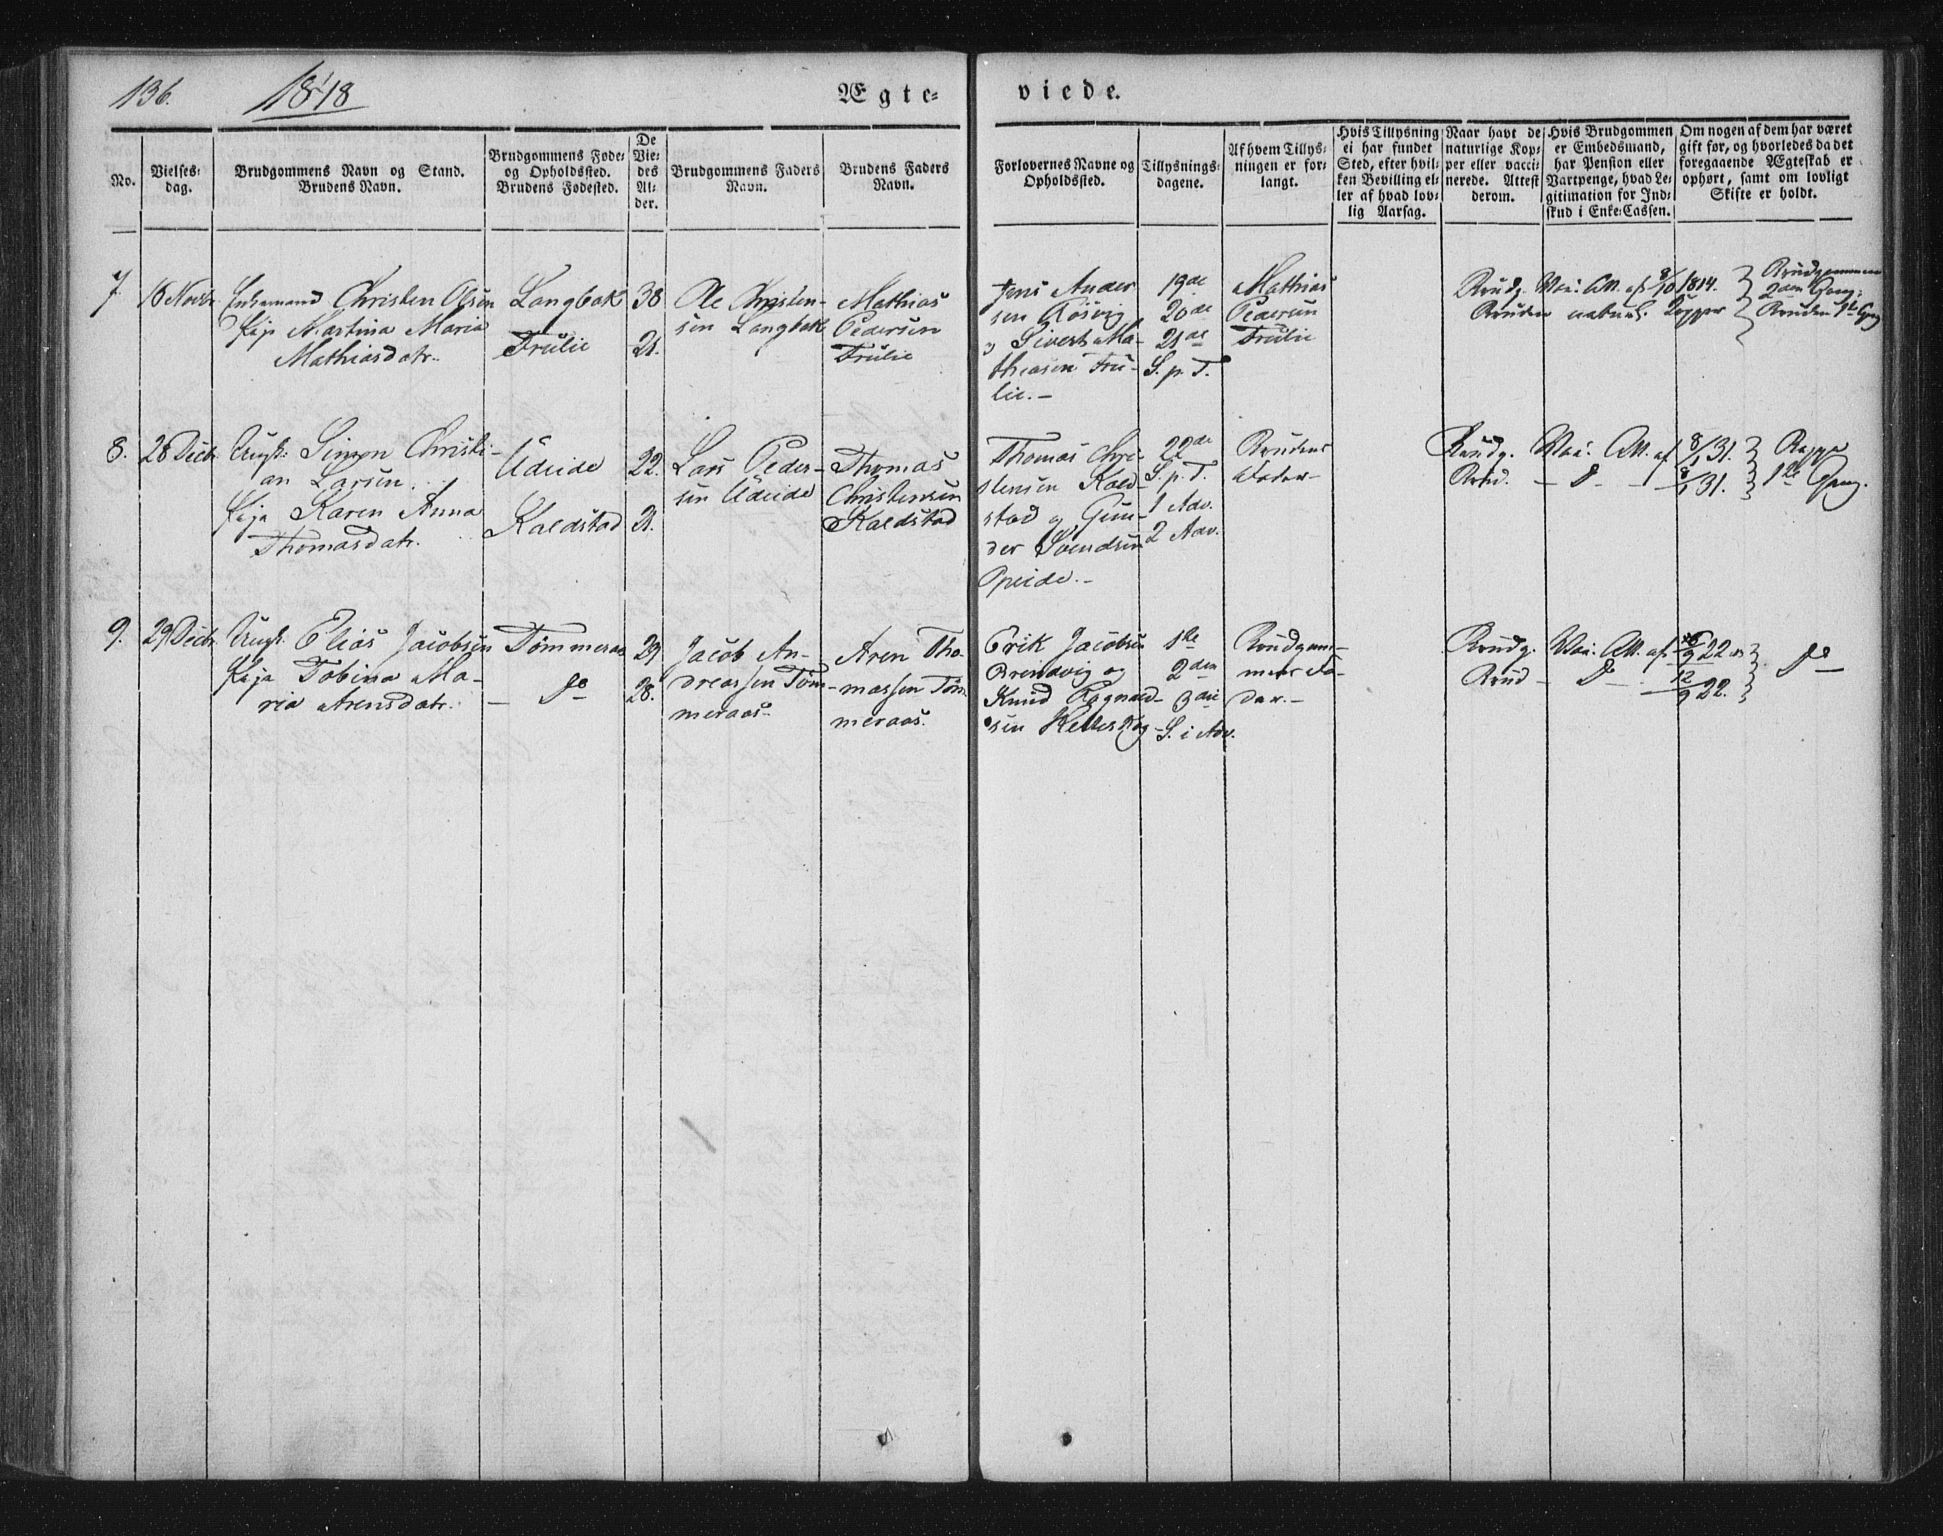 136.
1848
Ægte=
viede.
No.
Vielses=
dag.
Brudgommens Navn og Stand.
Brudens Navn.
Brudgommens Føde=
og Opholdssted.
Brudens Fødested.
De
Vie=
des
Al=
der.
Brudgommens Faders
Navn.
Brudens Faders
Navn.
Forlovernes Navne og
Opholdssted.
Tillysnings=
dagene.
Af hvem Tillys=
ningen er for=
langt.
Hvis Tillysning
ei har fundet
Sted, efter hvil=
ken Bevilling el=
ler af hvad lov=
lig Aarsag.
Naar havt de
naturlige Kop=
per eller vacci=
nerede. Attest
derom.
Hvis Brudgommen
er Embedsmand,
har Pension eller
Vartpenge, hvad Le=
gitimation for Ind=
skud i Enke=Cassen.
Om nogen af dem har været
gift før, og hvorledes da det
foregaaende Ægteskab er
ophørt, samt om lovligt
Skifte er holdt.
7.
16 Novbr
Enkemand Christen Olsen
Pige Martina Maria
Mathiasdatr.
Langbak
Trulie
38
21.
Ole Christen-
sen Langbak
Mathias
Pedersen
Trulie
Jens Ander
sen Rösvig
Sivert Ma-
thiasen Tru-
lie.-
19de
20de
21de
S. p. T.
Mathias
Pedersen
Trulie
Brudg. Vac. Att. af 8/10 1814.
Bruden naturl. Kopper
Brudgommen
2den Gang
Bruden 1ste Gang
8.
28 Decbr
Ungk. Simon Christi-
an Larsen.
Pige Karen Anna
Thomasdatr.
Udeide
Kaldstad
22.
21.
Lars Peder-
sen Udeide
Thomas
Christensen
Kaldstad
Thomas Chri-
stensen Kald-
stad og Gun-
der Svendsen
Opeide.-
22de
S. p. T.
1 Adv.
2 Adv.
Brudens
Fader-
Brudg. Vac. Att. af 8/1 31.
Brud. - Do - 8/1 31.
Begge
1ste Gang.
9.
29 Decbr
Ungk. Elias Jacobsen
Pige Tobina Ma-
ria Arensdatr.
Tömmeraas
- Do
29
28.
Jacob An-
dreassen Töm-
meraas-
Aren Tho-
massen Töm
meraas.
Erik Jacobsen
Brendvig og
Knud Ragnald-
sen
1ste
2den
3die
S. i Adv.
Brudgom-
mens Fa-
der.-
Brudg. Vac. Att. af 22
Brud - Do - 12/9 22.
Do